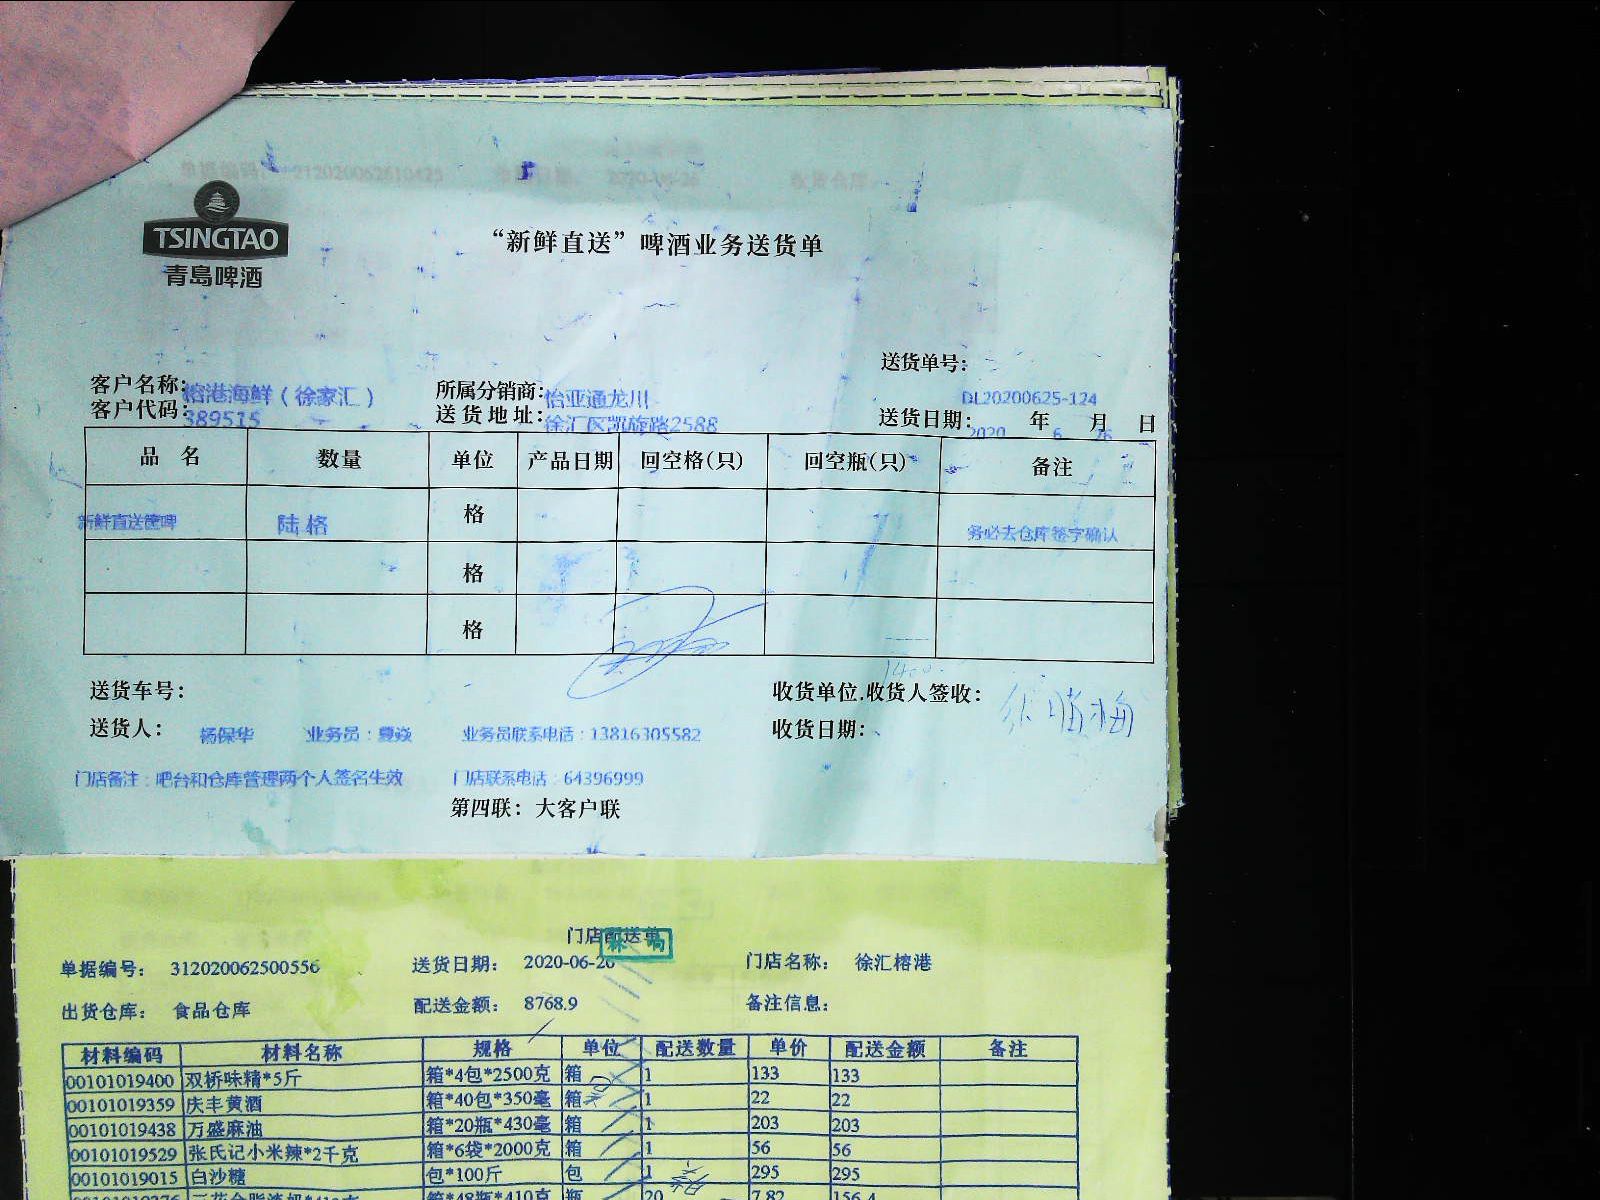 TSINGTAO
青岛啤酒
“新鲜直送”啤酒业务送货单
送货单号：
DL20200625-124
客户名称：榕港海鲜（徐家汇） 所属分销商：怡亚通龙川
客户代码：389515 送货地址：徐汇区凯旋路2588 送货日期：2020年6月26日
品 名 数量 单位 产品日期 回空格(只) 回空瓶(只) 备注
新鲜直送 陆格 格 务必去仓库签字确认
格
格
送货车号： 收货单位.收货人签收：
送货人： 杨保华 业务员：夏焱 业务员联系电话：13816305582 收货日期：
门店备注：吧台和仓库管理两个人签名生效 门店联系电话：64396999
第四联：大客户联
门店配送单
单据编号： 312020062500556 送货日期： 2020-06-26 门店名称： 徐汇榕港
出货仓库： 食品仓库 配送金额： 8768.9 备注信息：
材料编码 材料名称 规格 单位 配送数量 单价 配送金额 备注
00101019400 双桥味精*5斤 箱*4包*2500克 箱 1 133 133
00101019359 庆丰黄酒 箱*40包*350毫 箱 1 22 22
00101019438 万盛麻油 箱*20瓶*430毫 箱 1 203 203
00101019529 张氏记小米辣*2千克 箱*6袋*2000克 箱 1 56 56
00101019015 白沙糖 包*100斤 包 1 295 295
箱*48瓶*410克 瓶 20 7.82 156.4